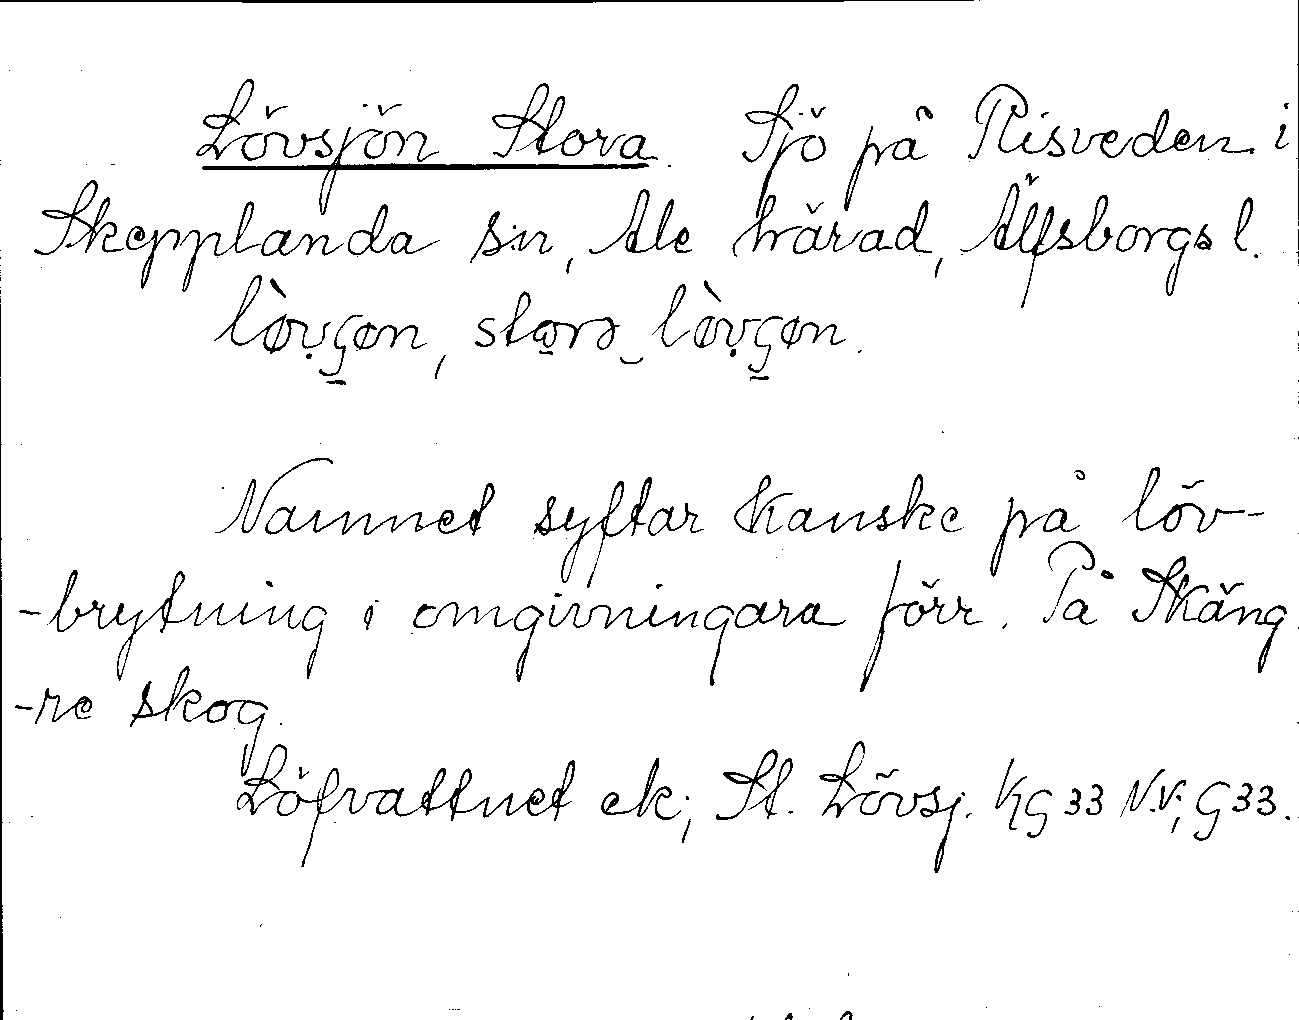 Lövsjön Stora. Sjö på Risveden i
Skepplanda sn, Ale härad, Älfsborgs l.
lòv̥ʂøn, stɷrə‿lòv̥ʂøn.
Namnet syftar kanske på löv-
-brytning i omgivningara förr. På Skäng
-re skog.
Löfvattnet ek; St. Lövsj. KG 33 N.V; G 33.